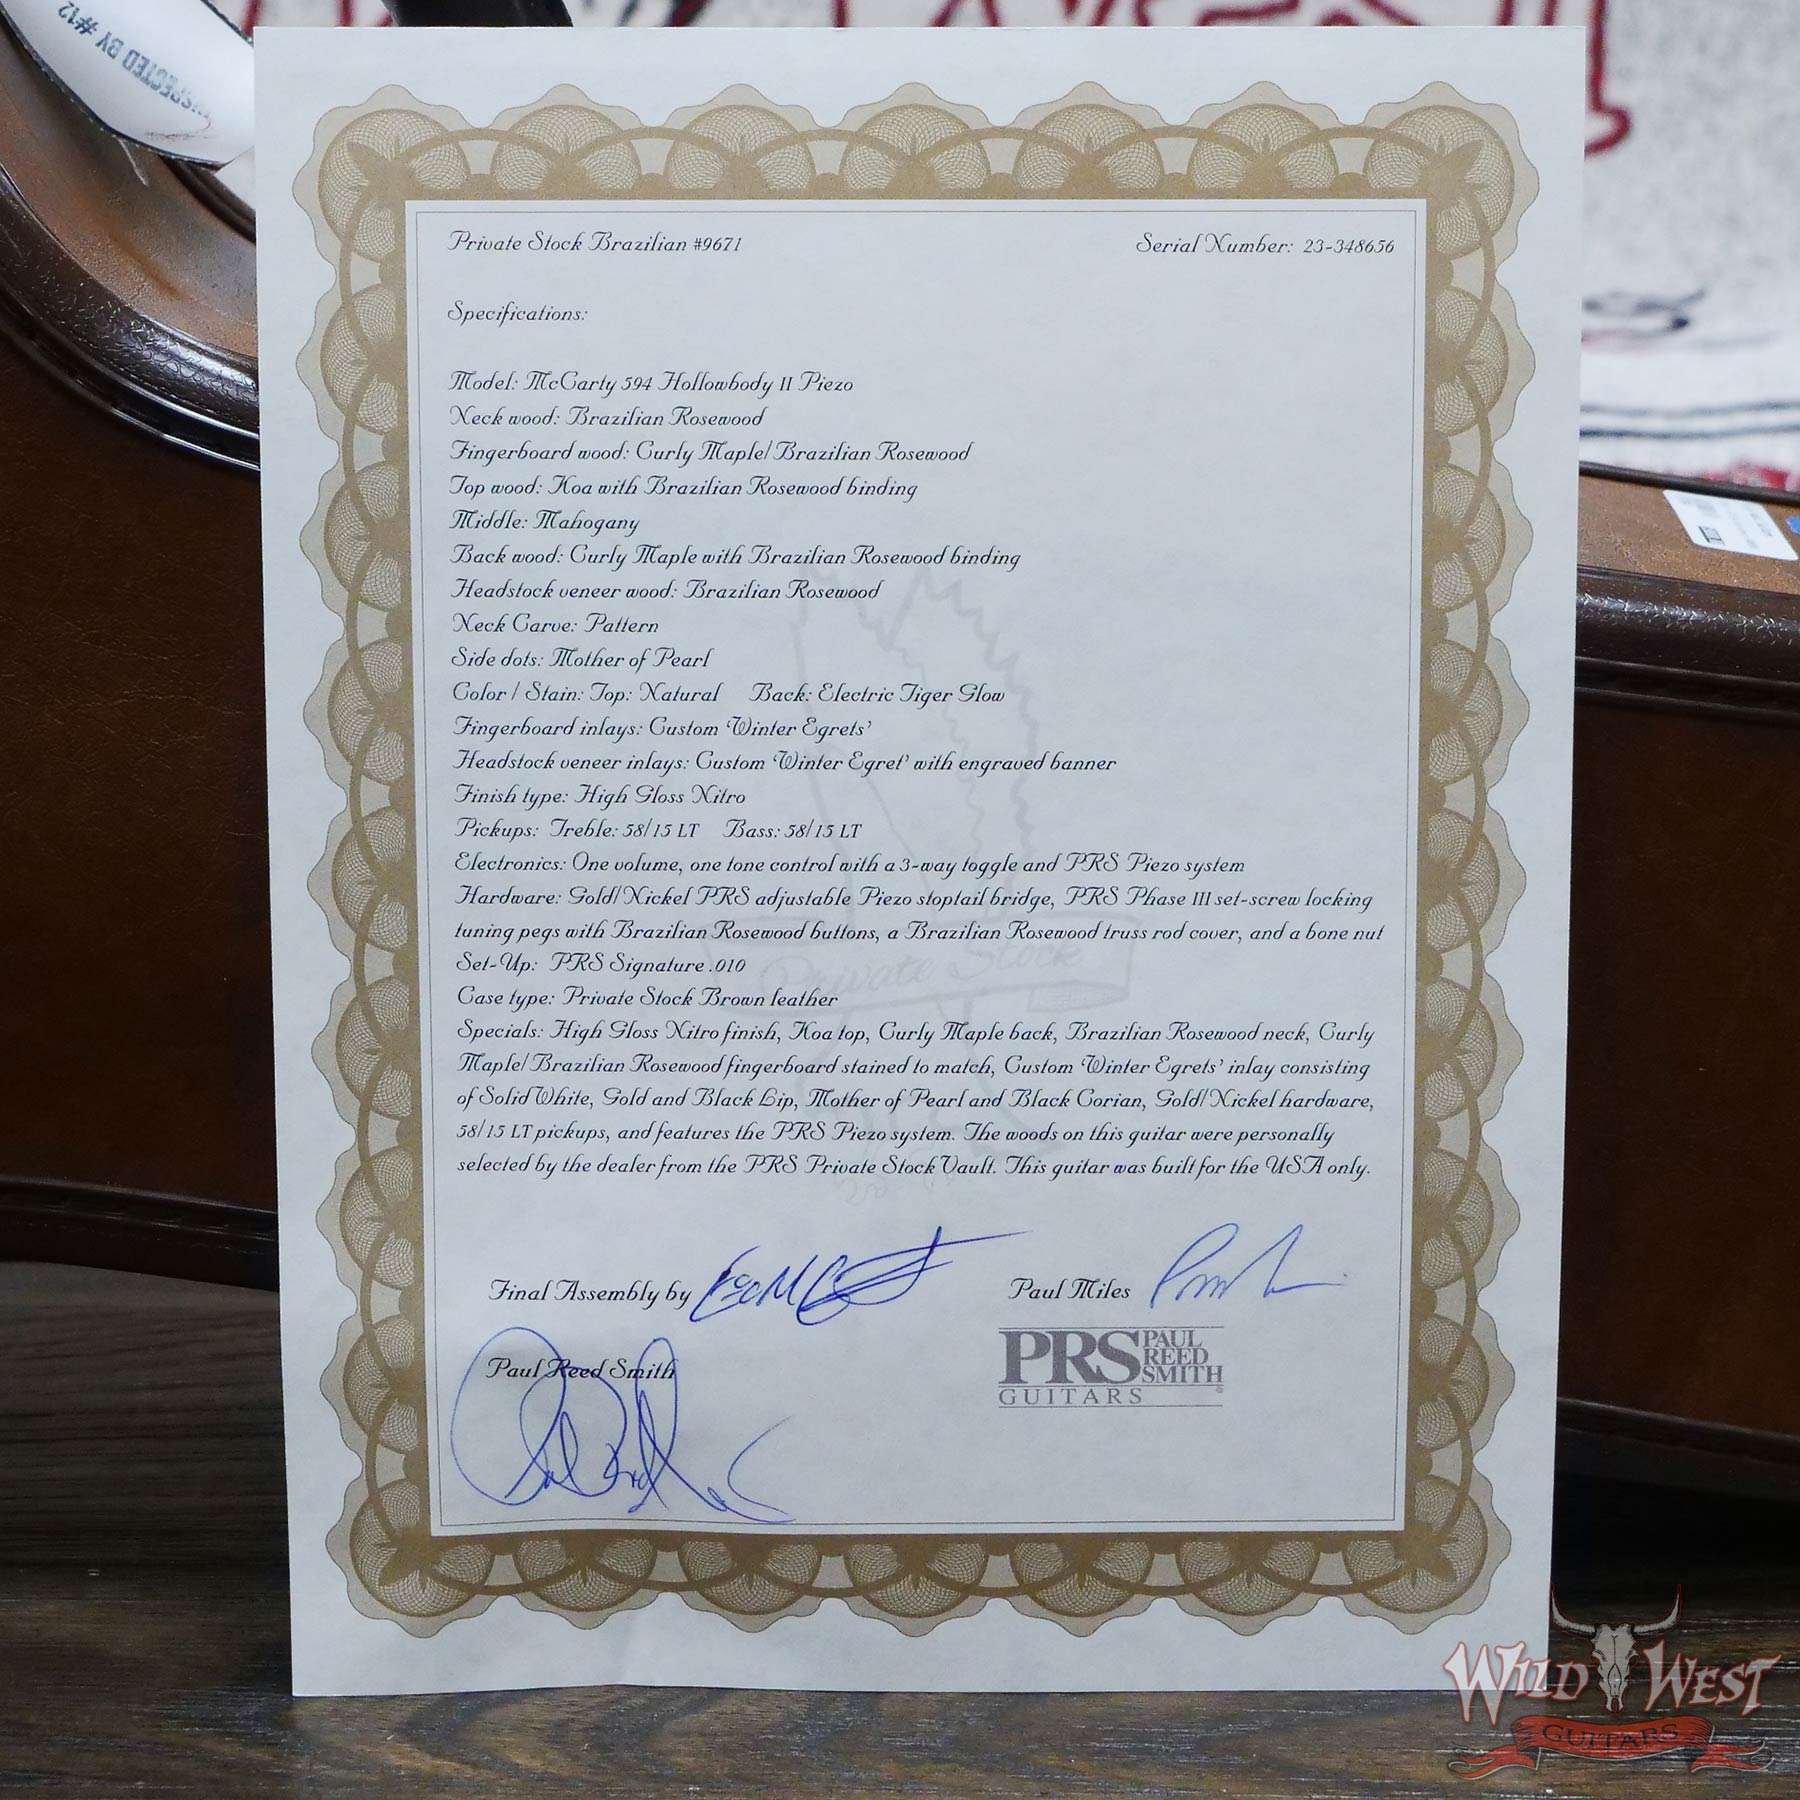 INSPECTED BY #12
Private Stock Brazilian #9671
Serial Number: 23-348656
Specifications:
Model: McCarty 594 Hollowbody II Piezo
Neck wood: Brazilian Rosewood
Fingerboard wood: Curly Maple/Brazilian Rosewood
Top wood: Koa with Brazilian Rosewood binding
Middle: Mahogany
Back wood: Curly Maple with Brazilian Rosewood binding
Headstock veneer wood: Brazilian Rosewood
Neck Carve: Pattern
Side dots: Mother of Pearl
Color / Stain: Top: Natural Back: Electric Tiger Glow
Fingerboard inlays: Custom 'Winter Egrets'
Headstock veneer inlays: Custom 'Winter Egret' with engraved banner
Finish type: High Gloss Nitro
Pickups: Treble: 58/15 LT Bass: 58/15 LT
Electronics: One volume, one tone control with a 3-way toggle and PRS Piezo system
Hardware: Gold/Nickel PRS adjustable Piezo stoptail bridge, PRS Phase III set-screw locking
tuning pegs with Brazilian Rosewood buttons, a Brazilian Rosewood truss rod cover, and a bone nut
Set-Up: PRS Signature .010
Private Stock
Case type: Private Stock Brown leather
Specials: High Gloss Nitro finish, Koa top, Curly Maple back, Brazilian Rosewood neck, Curly
Maple/Brazilian Rosewood fingerboard stained to match, Custom 'Winter Egrets' inlay consisting
of Solid White, Gold and Black Lip, Mother of Pearl and Black Corian, Gold/Nickel hardware,
58/15 LT pickups, and features the PRS Piezo system. The woods on this guitar were personally
selected by the dealer from the PRS Private Stock Vault. This guitar was built for the USA only.
Final Assembly by
Paul Miles
Paul Reed Smith
PRS PAUL REED SMITH
GUITARS
WILD WEST
GUITARS